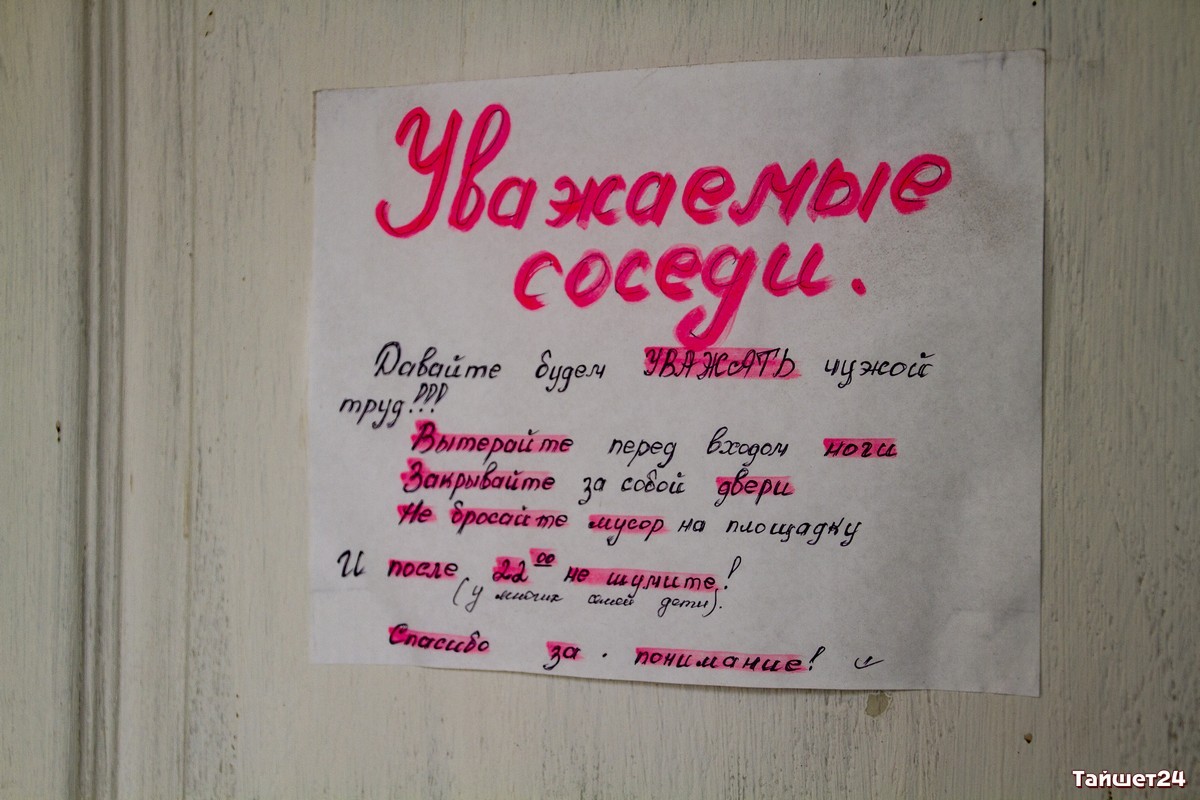 Уважаемые
соседи.
Давайте будем УВАЖАТЬ чужой
труд!!!
Вытерайте перед входом ноги
Закрывайте за собой двери
Не бросайте мусор на площадку
И после 22⁰⁰ не шумите!
(у многих дети).
Спасибо за понимание!
Тайшет24